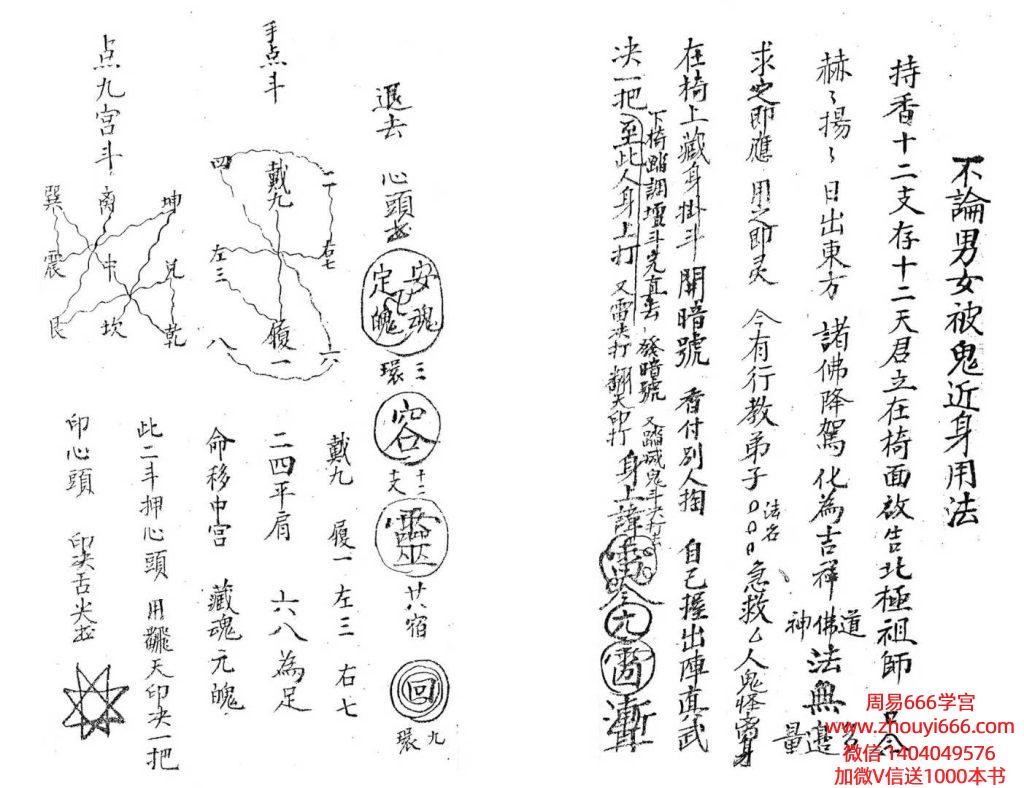 不論男女被鬼近身用法
持香十二支存十二天君立在椅面啟告北極祖師
赫〻揚〻 日出東方 諸佛降駕化為吉祥 神佛道法無量邊
求之即應 用之即灵 今有行教弟子法名急救ム人鬼怪
在椅上藏身掛斗 開暗號 香付別人掏 自己握出陣真武
決一把至此人身上打 又雷決打 翻天印打 身上諱
下椅踏調壇斗完直去 發暗號 又踏滅鬼斗決打去
退去 心頭
安魂
定魄
三環
容
十二支
靈
廿八宿
回
九環
手点斗
戴九
二
四
左三
右七
履一
六
八
戴九 履一 左三 右七
二四平肩 六八為足
命移中宮 藏魂元魄
点九宫斗
巽
离
坤
震
中
兑
艮
坎
乾
此二斗押心頭 用飜天印决一把
印心頭 印决舌尖
周易666学宫
www.zhouyi666.com
微信 1404049576
加微V信送1000本书